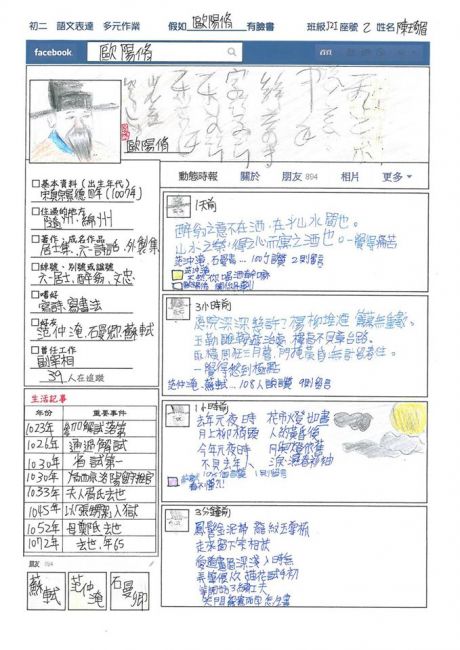 初二 語文表達 多元作業 假如 歐陽脩 有臉書 班級 J21 座號 2 姓名
facebook 歐陽脩
歐陽脩
動態時報 關於 朋友 894 相片 更多
□基本資料(出生年代)
宋真宗景德四年(1007年)
□住過的地方
隨州、綿州
□著作、成名作品
居士集、六一詩話、外製集
□綽號、別號或諡號
六一居士、醉翁、文忠
□嗜好
寫詩、寫書法
□好友
范仲淹、石曼卿、蘇軾
□曾任工作
副宰相
39 人在追蹤
生活記事
年份 重要事件
1023年 參加解試落第
1026年 通過解試
1030年 省試第一
1030年
1033年 夫人胥氏去世
1045年 入獄
1052年 母鄭氏去世
1072年 去世,年65
朋友 894
蘇軾 范仲淹 石曼卿
1天前
醉翁之意不在酒,在乎山水間也。
山水之樂,得之心而寓之酒也。
范仲淹、石曼卿
范仲淹
歐陽脩
3小時前
庭院深深深幾許?楊柳堆煙,簾幕無重數。
玉勒雕鞍遊冶處,樓高不見章台路。
雨橫風狂三月暮,門掩黃昏,無計留春住。
范仲淹、蘇軾...108人說讚
1小時前
去年元夜時 花市燈如晝
月上柳梢頭 人約黃昏後
今年元夜時 月與燈依舊
不見去年人 淚濕春衫袖
3分鐘前
鳳髻金泥帶 龍紋玉掌梳
走來窗下笑相扶
愛道畫眉深淺入時無
弄筆偎人久 描花試手初
等閒妨了繡工夫
笑問鴛鴦兩字怎生書